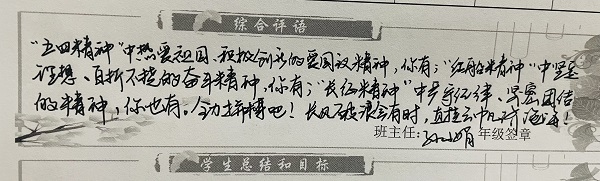 综合评语
"五四精神"中热爱祖国、积极创新的爱国主义精神，你有；"红船精神"中坚定
理想、百折不挠的奋斗精神，你有；"长征精神"中严守纪律、紧密团结
的精神，你也有。全力拼搏吧！长风破浪会有时，直挂云帆济沧海！
班主任: 年级签章
学生总结和目标